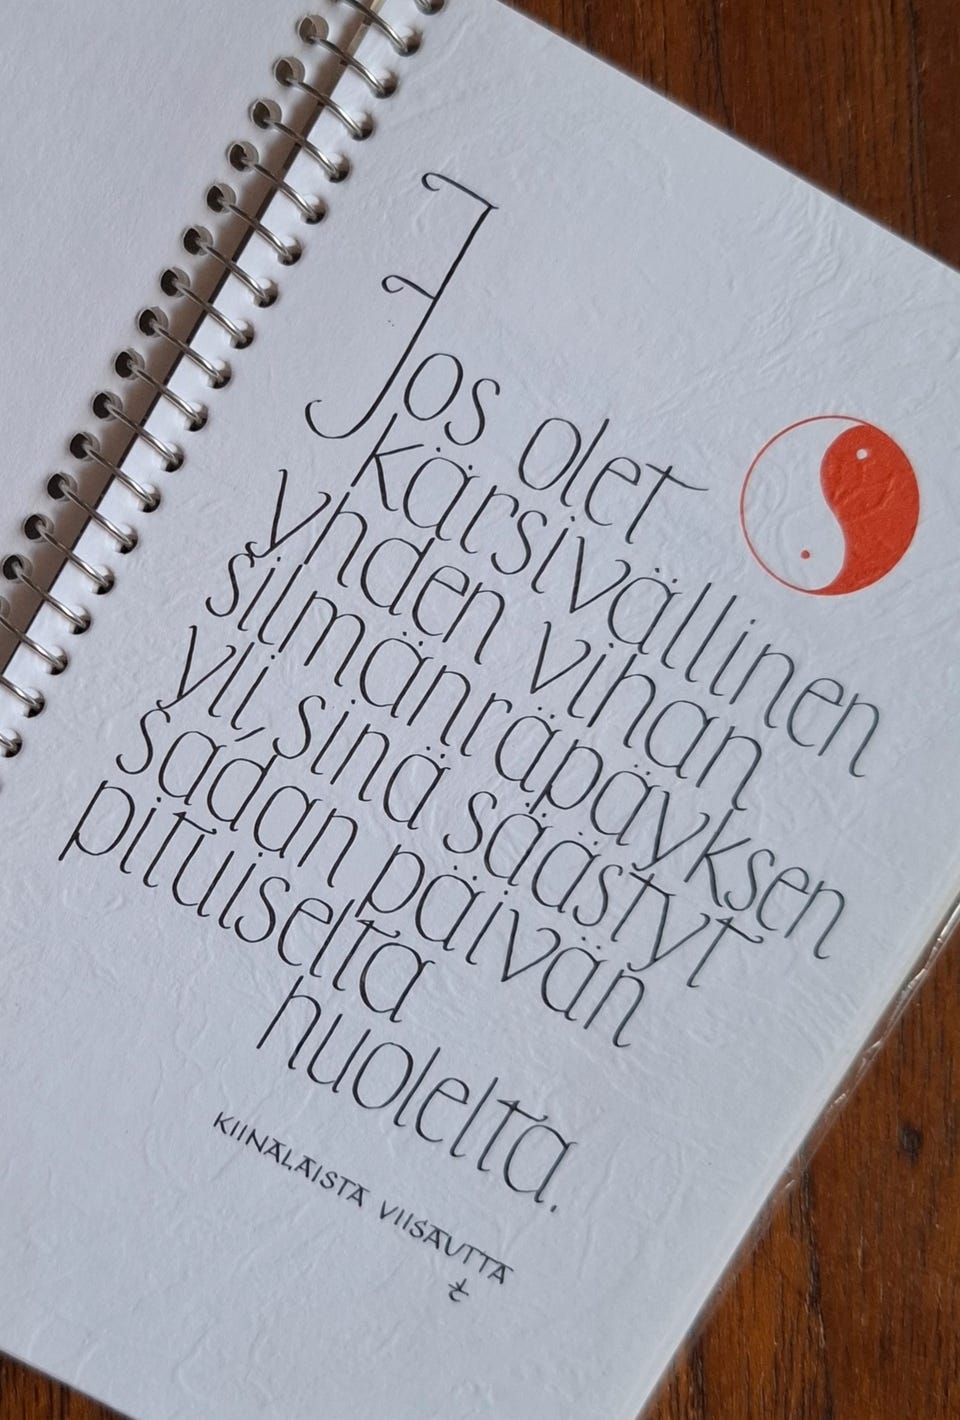 Jos olet
kärsivällinen
yhden vihan
silmänräpäyksen
yli, sinä säästyt
sadan päivän
pituiselta
huolelta.
KIINALAISTA VIISAUTTA